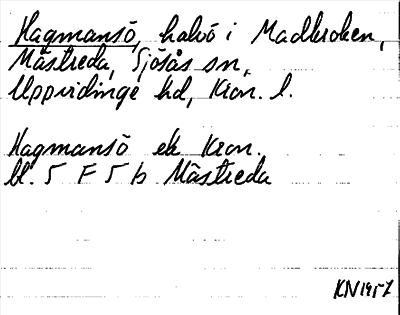 Hagmansö, halvö i Madkroken,
Mästreda, Sjösås sn,
Uppvidinge hd, Kron. l.
Hagmansö ek Kron.
bl. 5 F 5 b Mästreda
KN 1957